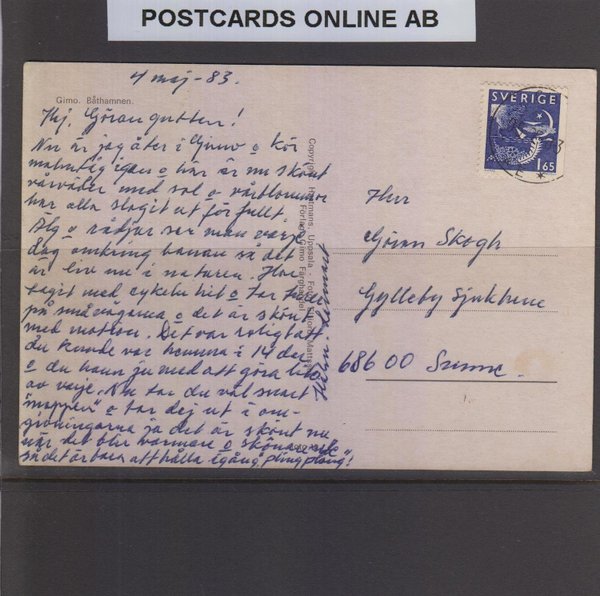 POSTCARDS ONLINE AB
4 maj -83.
Gimo. Båthamnen.
Hej, Göran gutten!
Nu är jag åter i Gimo o kör
malmtåg igen o här är nu skönt
vårväder med sol o vårblommor
har alla slagit ut för fullt.
Älg o rådjur ser man varje
dag omkring banan så det
är liv nu i naturen. Har
tagit med cykeln hit o far
på småvägarna o det är skönt
med motion. Det var roligt att
du kunde var hemma i 14 dar
o du hann ju med att göra lite
av varje. Nu tar du väl snart
"moppen" o tar dej ut i om-
givningarna ja det är skönt nu
när det blir varmare o skönare
så det är bara att hålla igång "pling plong"!
Copyright: Uppsala
Förlag: Gimo Färghandel
SVERIGE
1.65
Herr
Göran Skogh
Gylleby Sjukhem
686 00 Sunne.